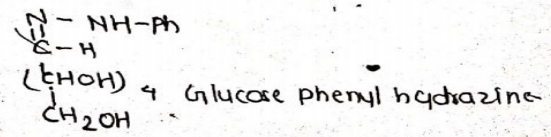 N - NH-Ph
C - H
(CHOH) 4 Glucose phenyl hydrazine
CH2OH